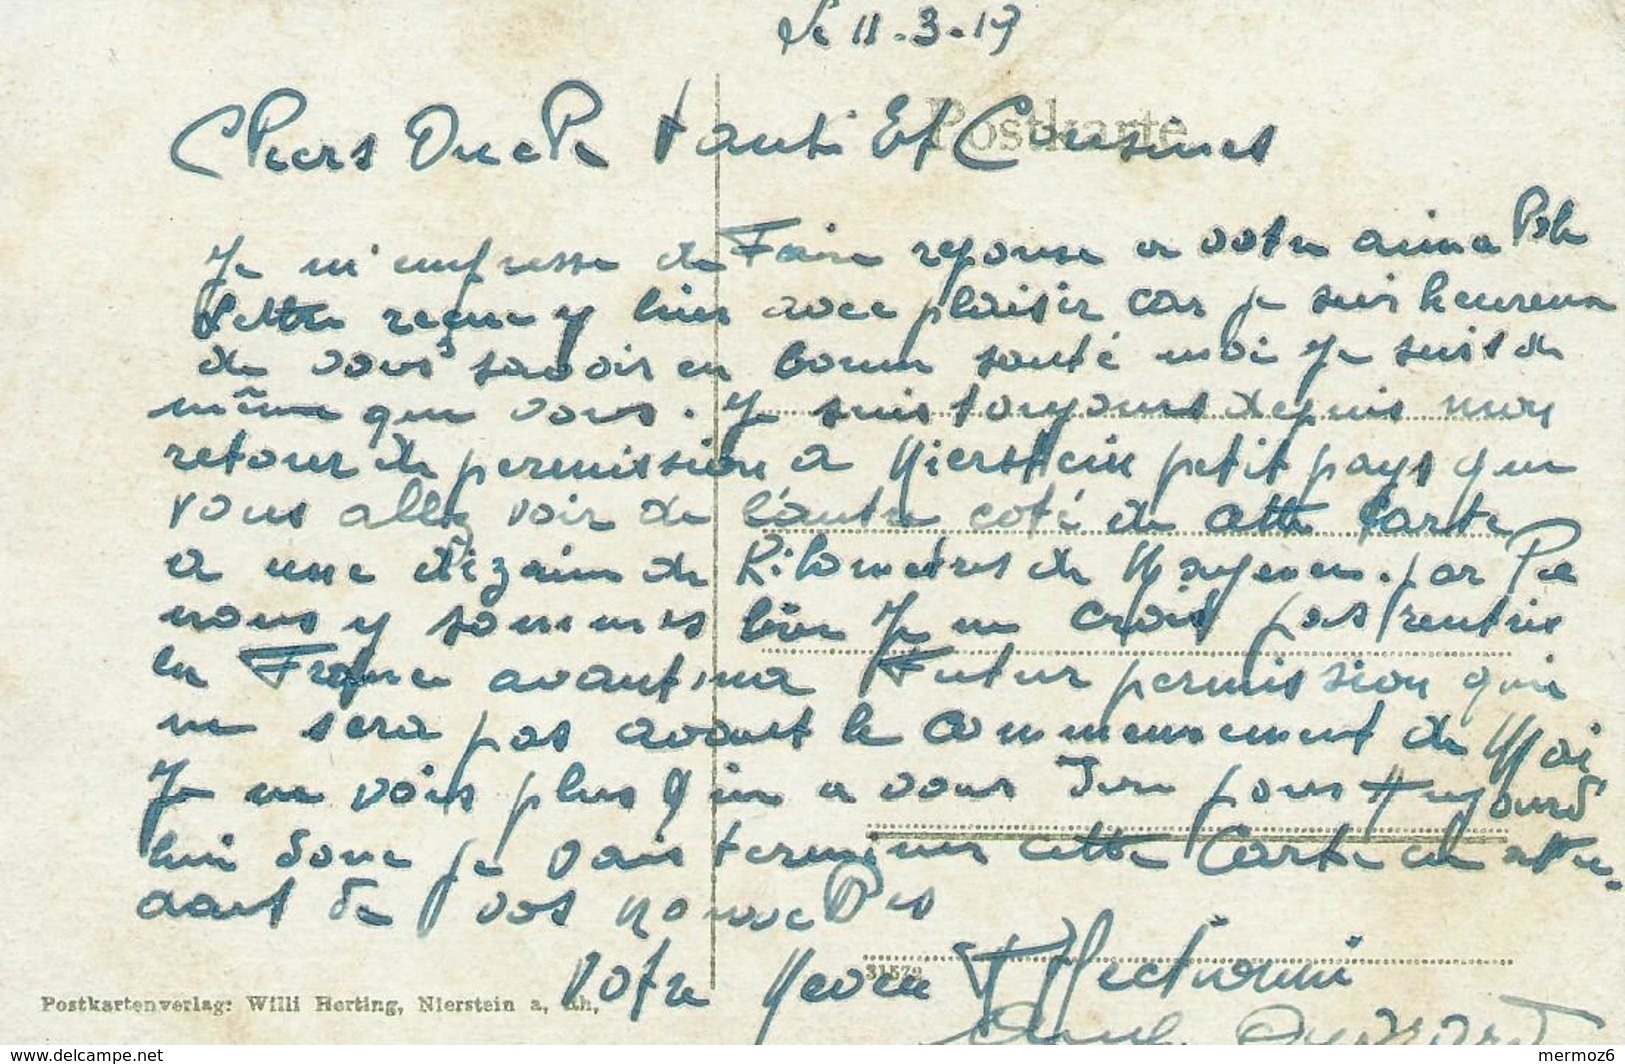 Le 11-3-19
Postkarte
Chers Oncle Tante Et Cousines
Je m'empresse de Faire reponse a votre aimable
lettre reçue y hier avec plaisir car je suis heureux
de vous savoir en bonne santé moi Je suis de
même que vous. Je suis toujours depuis mon
retour de permission a Nierstein petit pays que
vous allez voir de l'autre coté de cette Carte
a une dizaine de Kilometres de Mayence. par le
nous y sommes bien Je ne crois pas rentrés
en France avant ma Futur permission qui
ne sera pas avant le commencement de Mai
Je ne vois plus rien a vous pour Aujourd'
hui donc je vais terminer cette Carte en atten-
dant de vos nouvelles
Votre Neveu Affectionné
31572
Postkartenverlag: Willi Herting, Nierstein a. Rh.
https://www.delcampe.net
mermoz6